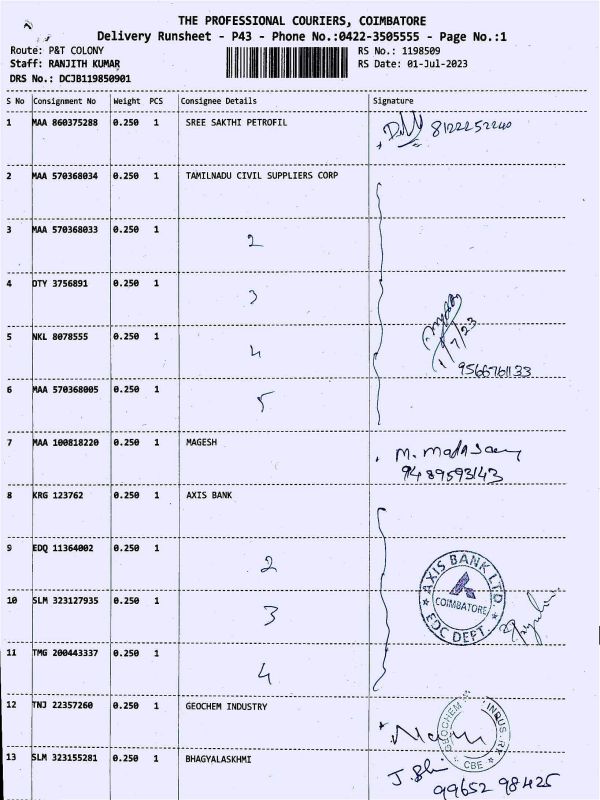 THE PROFESSIONAL COURIERS, COIMBATORE
Delivery Runsheet - P43 - Phone No.:0422-3505555 - Page No.:1
Route: P&T COLONY RS No.: 1198509
Staff: RANJITH KUMAR RS Date: 01-Jul-2023
DRS No.: DCJB119850901
S No Consignment No Weight PCS Consignee Details Signature
1 MAA 860375288 0.250 1 SREE SAKTHI PETROFIL 8122252240
2 MAA 570368034 0.250 1 TAMILNADU CIVIL SUPPLIERS CORP
3 MAA 570368033 0.250 1 2
4 DTY 3756891 0.250 1 3
1/7/23
5 NKL 8078555 0.250 1 4
9566761133
6 MAA 570368005 0.250 1 5
7 MAA 100818220 0.250 1 MAGESH M. Madasamy
9489593143
8 KRG 123762 0.250 1 AXIS BANK
9 EDQ 11364002 0.250 1 2
AXIS BANK LTD.
10 SLM 323127935 0.250 1 3 COIMBATORE
EDC DEPT.
11 TMG 200443337 0.250 1 4
12 TNJ 22357260 0.250 1 GEOCHEM INDUSTRY
GEOCHEM INDUS.RK
CBE
13 SLM 323155281 0.250 1 BHAGYALASKHMI
99652 98425